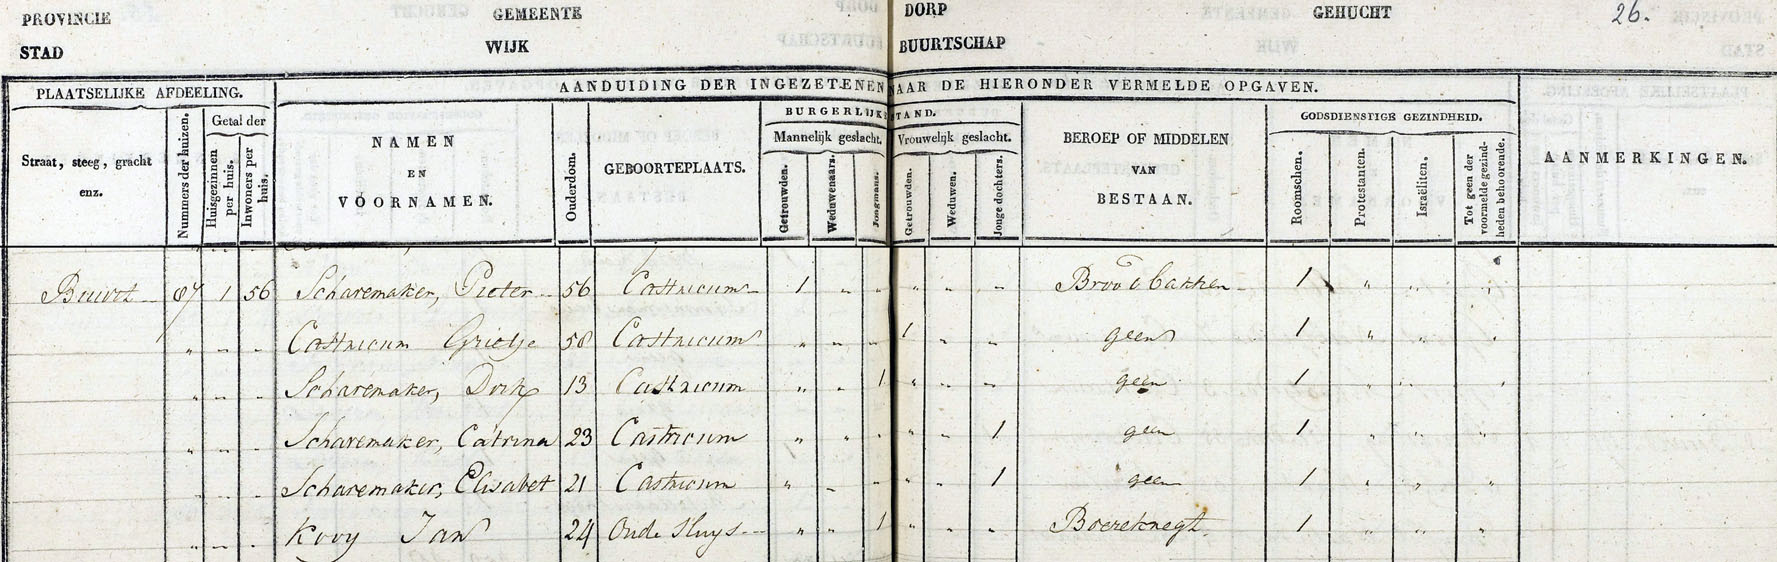 PROVINCIE GEMEENTE DORP GEHUCHT 26.
STAD WIJK BUURTSCHAP
PLAATSELIJKE AFDEELING. AANDUIDING DER INGEZETENEN NAAR DE HIERONDER VERMELDE OPGAVEN. AANMERKINGEN.
Straat, steeg, gracht enz.
Nummers der huizen.
Getal der
Huisgezinnen per huis.
Inwoners per huis.
NAMEN
EN
VOORNAMEN.
Ouderdom.
GEBOORTEPLAATS.
BURGERLIJKE STAND.
Mannelijk geslacht. Vrouwelijk geslacht.
Getrouwden. Weduwenaars. Jongmans. Getrouwden. Weduwen. Jonge dochters.
BEROEP OF MIDDELEN
VAN
BESTAAN.
GODSDIENSTIGE GEZINDHEID.
Roomschen. Protestanten. Israëliten. Tot geen der voormelde gezindheden behoorende.
Buurt 87 1 56 Scharemaker, Pieter 56 Castricum 1 " " " " " Brood bakken 1 " " "
" " " Castricum Grietje 58 Castricum " " " 1 " " geen 1 " " "
" " " Scharemaker, Dirk 13 Castricum " " 1 " " " geen 1 " " "
" " " Scharemaker, Catrina 23 Castricum " " " " " 1 geen 1 " " "
" " " Scharemaker, Elisabet 21 Castricum " " " " " 1 geen 1 " " "
" " " Kooy Jan 24 Oude Sluys " " 1 " " " Boereknegt 1 " " "